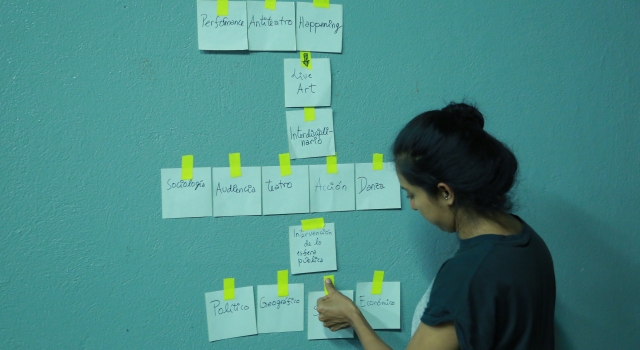 Performance
Antiteatro
Happening
Live
Art
Interdiscipli-
nario
Sociología
Audiencia
Teatro
Acción
Danza
Intervención
de la
esfera
pública
Político
Geográfico
Económico